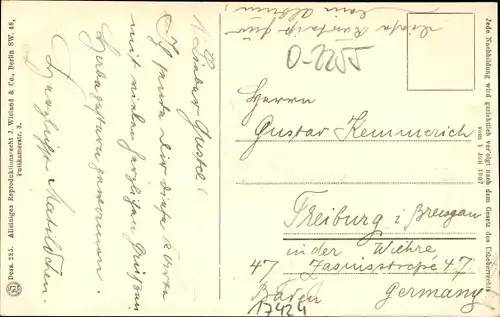 Dess. 285. Alleiniges Reproduktionsrecht J. Wieland & Co., Berlin SW. 48,
Puttkamerstr. 3.
Lieber Gustel!
Ich sende Dir diese Karte
mit vielen herzlichen Grüßen
Herzlichst
diese Karte ist für
dein Album
O-2255
Herrn
Gustav Kemmerich
Freiburg i Breisgau
in der Wiehre
47 47
Baden Germany
17424
Jede Nachbildung wird gerichtlich verfolgt nach dem Gesetz des Urheberrechts
vom 1 Juli 1907